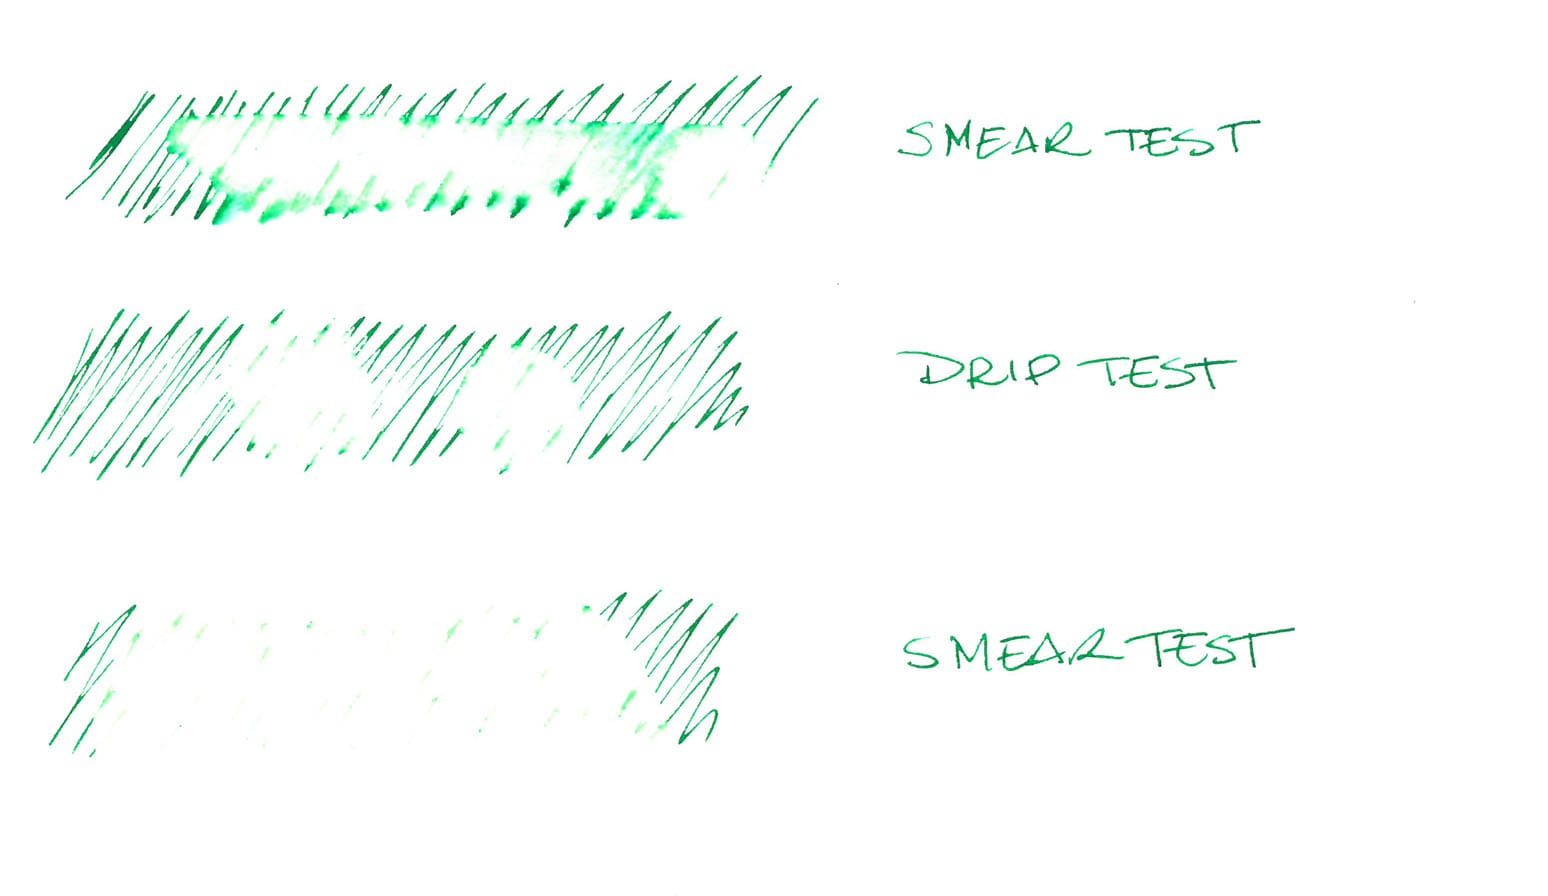 SMEAR TEST
DRIP TEST
SMEAR TEST